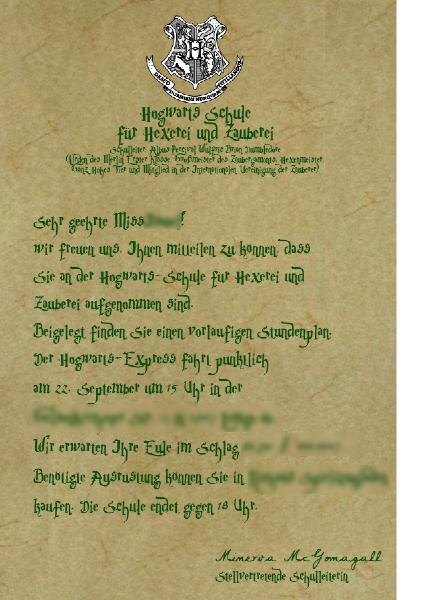 Hogwarts Schule
für Hexerei und Zauberei
Schulleiter: Albus Percival Wulfric Brian Dumbledore
(Orden des Merlin Erster Klasse, Großmeister des Zaubergamots, Hexenmeister,
Ganz Hohes Tier und Mitglied in der Internationalen Vereinigung der Zauberer)
Sehr geehrte Miss !
wir freuen uns, Ihnen mitteilen zu können, dass
Sie an der Hogwarts-Schule für Hexerei und
Zauberei aufgenommen sind.
Beigelegt finden Sie einen vorläufigen Stundenplan.
Der Hogwarts-Express fährt pünktlich
am 22. September um 15 Uhr in der
Wir erwarten Ihre Eule im Schlag
Benötigte Ausrüstung können Sie in
kaufen. Die Schule endet gegen 18 Uhr.
Minerva McGonagall
Stellvertretende Schulleiterin